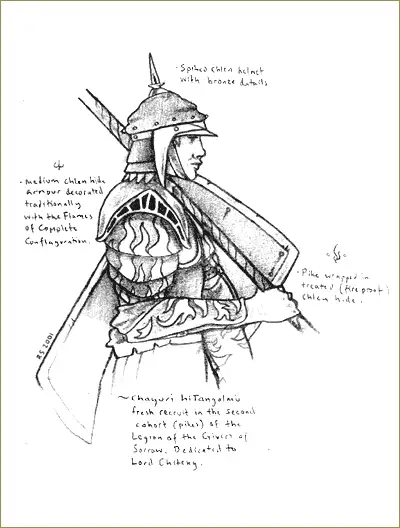 · Spiked chlen helmet
with bronze details
· medium chlen hide
armour decorated
traditionally
with the Flames
of Complete
Conflaguration.
· Pike wrapped in
treated (fire proof)
chlen hide.
RS 2001
~ Chayuri hiTangolmü
fresh recruit in the second
cohort (pikes) of the
Legion of the Givers of
Sorrow. Dedicated to
Lord Chiteng.